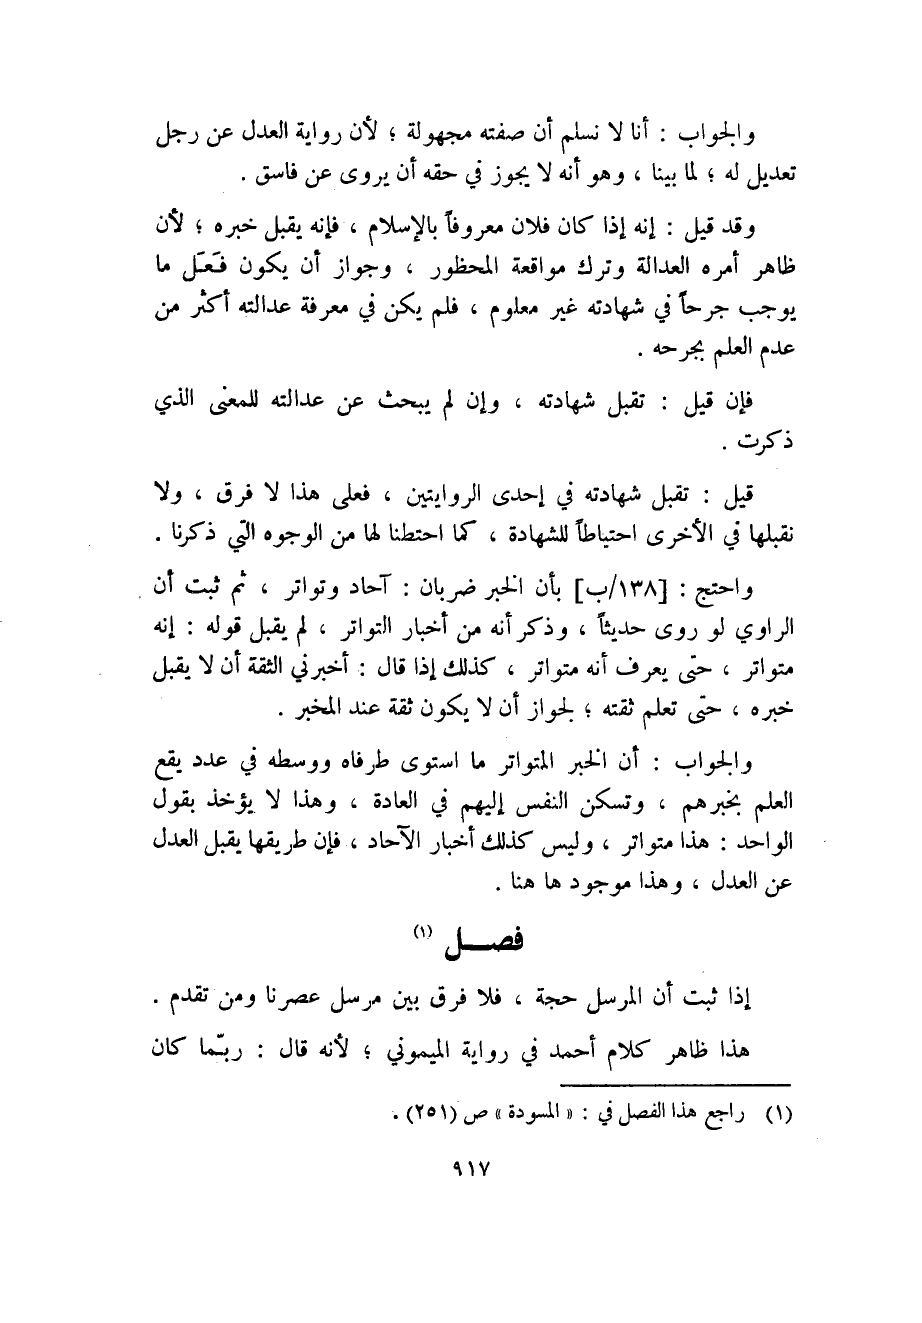 والجواب : أنا لا نسلم أن صفته مجهولة ؛ لأن رواية العدل عن رجل
تعديل له ؛ لما بينا ، وهو أنه لا يجوز في حقه أن يروى عن فاسق .
وقد قيل : إنه إذا كان فلان معروفاً بالإسلام ، فإنه يقبل خبره ؛ لأن
ظاهر أمره العدالة وترك مواقعة المحظور ، وجواز أن يكون فَعَل ما
يوجب جرحاً في شهادته غير معلوم ، فلم يكن في معرفة عدالته أكثر من
عدم العلم بجرحه .
فإن قيل : تقبل شهادته ، وإن لم يبحث عن عدالته للمعنى الذي
ذكرت .
قيل : تقبل شهادته في إحدى الروايتين ، فعلى هذا لا فرق ، ولا
نقبلها في الأخرى احتياطاً للشهادة ، كما احتطنا لها من الوجوه التي ذكرنا .
واحتج : [١٣٨/ب] بأن الخبر ضربان : آحاد وتواتر ، ثم ثبت أن
الراوي لو روى حديثاً ، وذكر أنه من أخبار التواتر ، لم يقبل قوله : إنه
متواتر ، حتى يعرف أنه متواتر ، كذلك إذا قال : أخبرني الثقة أن لا يقبل
خبره ، حتى تعلم ثقته ؛ لجواز أن لا يكون ثقة عند المخبر .
والجواب : أن الخبر المتواتر ما استوى طرفاه ووسطه في عدد يقع
العلم بخبرهم ، وتسكن النفس إليهم في العادة ، وهذا لا يؤخذ بقول
الواحد : هذا متواتر ، وليس كذلك أخبار الآحاد ، فإن طريقها يقبل العدل
عن العدل ، وهذا موجود ها هنا .
فصــل (١)
إذا ثبت أن المرسل حجة ، فلا فرق بين مرسل عصرنا ومن تقدم .
هذا ظاهر كلام أحمد في رواية الميموني ؛ لأنه قال : ربّما كان
(١) راجع هذا الفصل في : « المسودة » ص (٢٥١) .
٩١٧